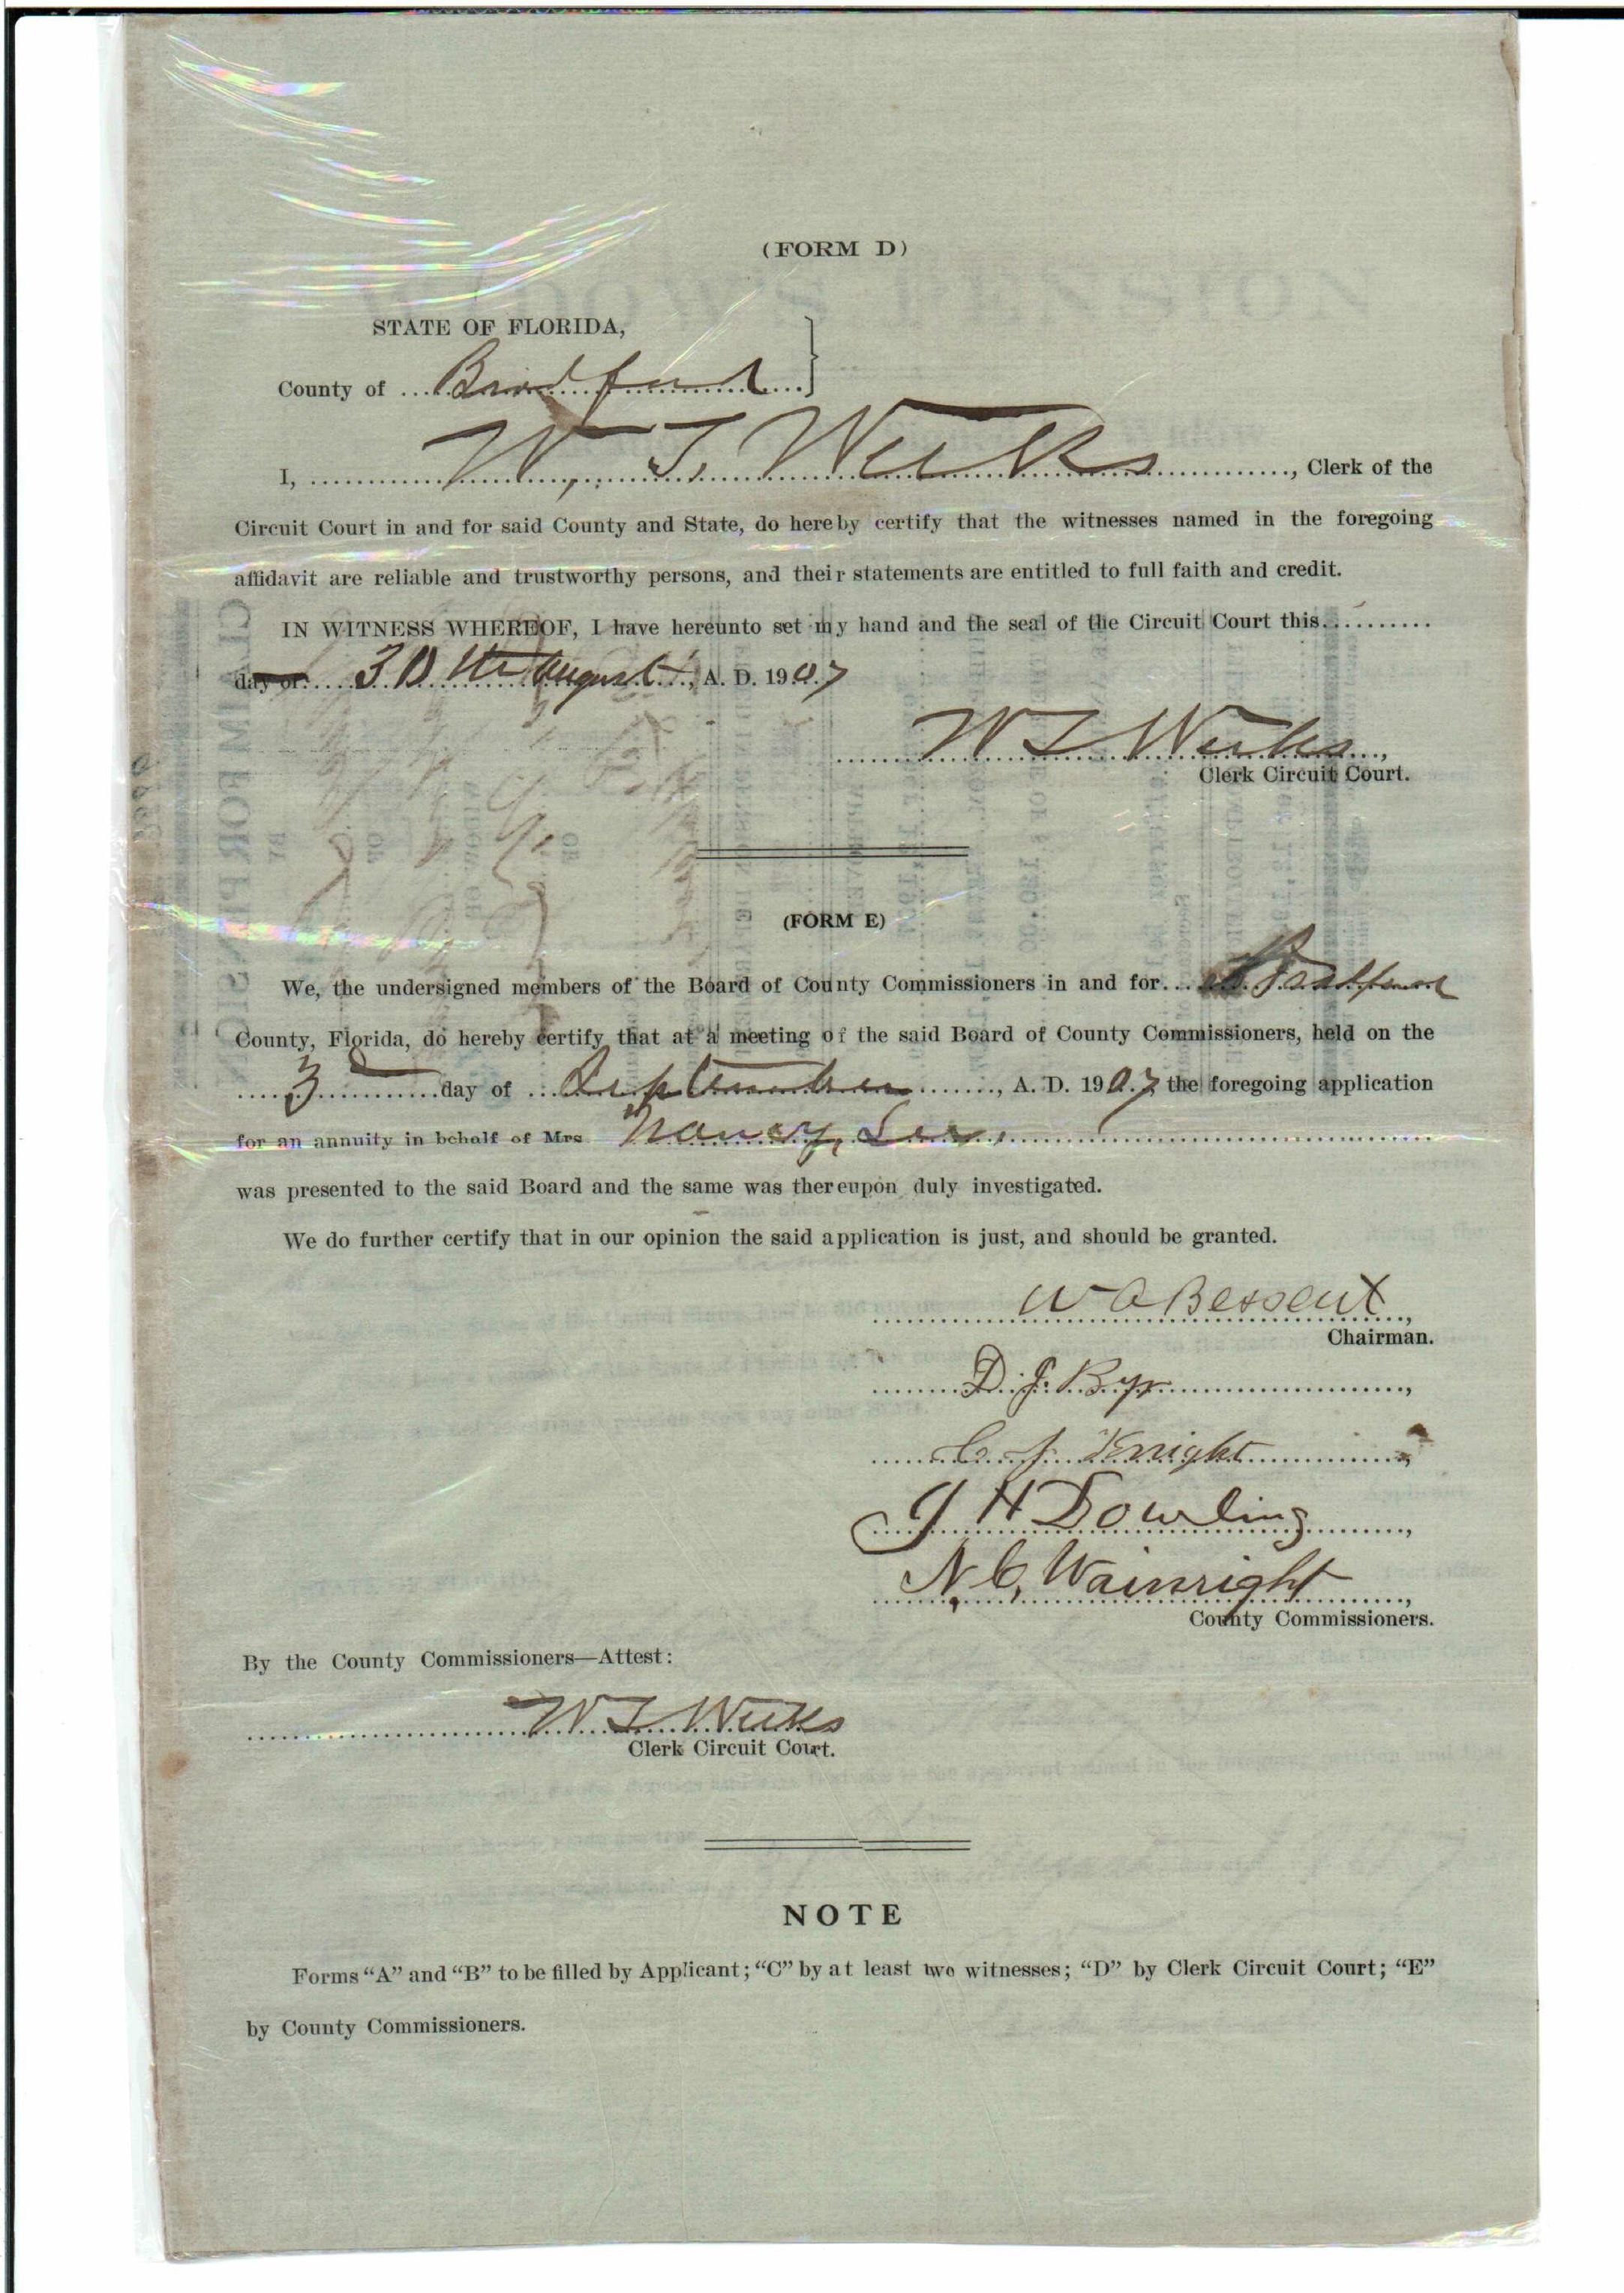 (FORM D)
STATE OF FLORIDA,
County of Bradford
I, W. T. Weeks, Clerk of the
Circuit Court in and for said County and State, do hereby certify that the witnesses named in the foregoing
affidavit are reliable and trustworthy persons, and their statements are entitled to full faith and credit.
IN WITNESS WHEREOF, I have hereunto set my hand and the seal of the Circuit Court this
day of 30th August, A. D. 1907
W T Weeks,
Clerk Circuit Court.
(FORM E)
We, the undersigned members of the Board of County Commissioners in and for Bradford
County, Florida, do hereby certify that at a meeting of the said Board of County Commissioners, held on the
3d day of September, A. D. 1907, the foregoing application
for an annuity in behalf of Mrs Nancy
was presented to the said Board and the same was thereupon duly investigated.
We do further certify that in our opinion the said application is just, and should be granted.
W A Bessent,
Chairman.
D. J.
C. J. Knight,
J H Dowling,
N. C. Wainright,
County Commissioners.
By the County Commissioners—Attest:
W T Weeks
Clerk Circuit Court.
NOTE
Forms “A” and “B” to be filled by Applicant; “C” by at least two witnesses; “D” by Clerk Circuit Court; “E”
by County Commissioners.